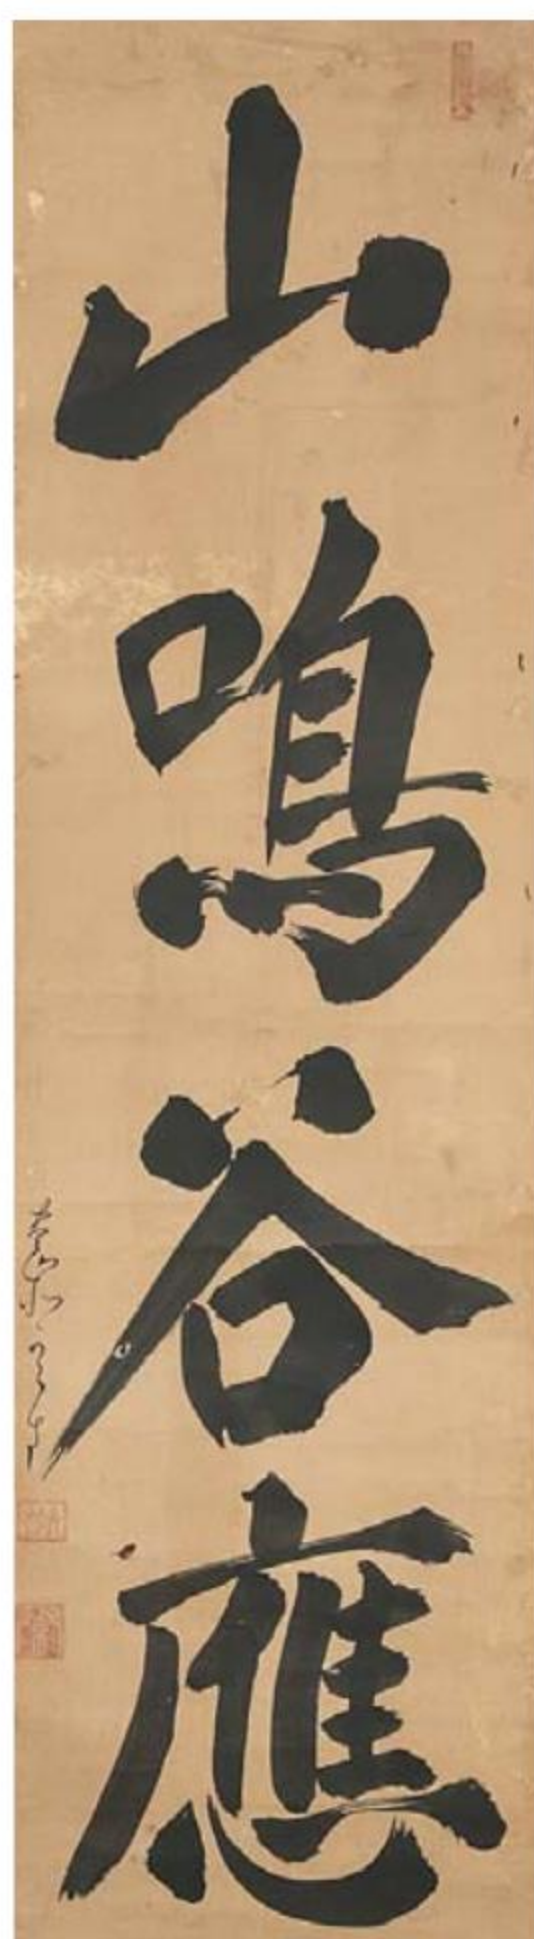 山鳴谷應